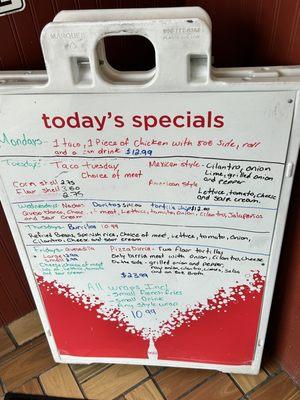 MARQUEE
today's specials
Mondays- 1 taco, 1 Piece of Chicken with 8oz side, roll
and a can drink $12.99
Tuesday: Taco tuesday
Choice of meat
Corn shell 2.75
Flour shell 3.50
Mexican style - Cilantro, onion
Lime, grilled onion
and pepper
American style
Lettuce, tomato, cheese
and sour cream
Wednesday: Nachos Doritos Spicy tortilla chip $12.00
Queso cheese, Choice of meat, Lettuce, tomato, onion, cilantro, Jalapeños
and sour cream
Thursdays: Burritos 10.99
Refried beans, Spanish rice, Choice of meat, Lettuce, tomato, onion,
Cilantro, Cheese and sour cream
Fridays: Quesadilla
Large
Small
Cheese, choice of meat
Lettuce, tomato
and sour cream
Pizza birria - Two flour tortillas
Only birria meat with onion, cilantro, cheese
grilled onion and pepper,
raw onion, cilantro, salsa
and 8oz Broth.
$23.99
All wraps Incl
Small French Fries
Small Drink
Any style wrap
10.99